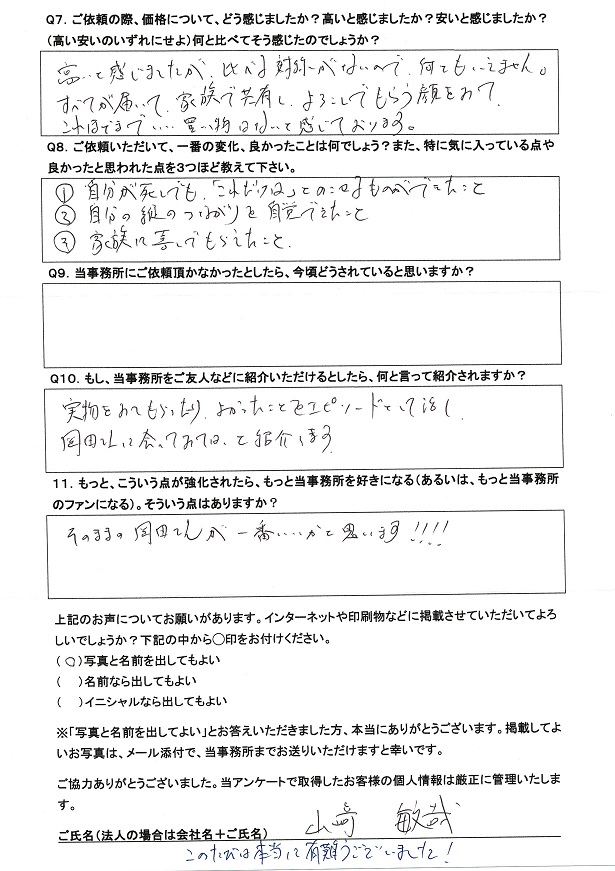 Q7. ご依頼の際、価格について、どう感じましたか？高いと感じましたか？安いと感じましたか？
(高い安いのいずれにせよ)何と比べてそう感じたのでしょうか？
高いと感じましたが、比べる対称がないので、何ともいえません。
すべてが届いて、家族で共有し、よろこんでもらう顔をみて、
これほどまでいい買い物はないと感じております。
Q8. ご依頼いただいて、一番の変化、良かったことは何でしょう？また、特に気に入っている点や
良かったと思われた点を3つほど教えて下さい。
① 自分が死んでも、「これだけは」とのこせるものができたこと
② 自分の縦のつながりを自覚できたこと
③ 家族に喜んでもらえたこと。
Q9. 当事務所にご依頼頂かなかったとしたら、今頃どうされていると思いますか？
Q10. もし、当事務所をご友人などに紹介いただけるとしたら、何と言って紹介されますか？
実物をみてもらったり、よかったことをエピソードとして話し、
岡田さんに会ってみては、と紹介します
11. もっと、こういう点が強化されたら、もっと当事務所を好きになる(あるいは、もっと当事務所
のファンになる)。そういう点はありますか？
そのままの岡田さんが一番いいかと思います!!!!
上記のお声についてお願いがあります。インターネットや印刷物などに掲載させていただいてよろ
しいでしょうか？下記の中から○印をお付けください。
(○)写真と名前を出してもよい
( )名前なら出してもよい
( )イニシャルなら出してもよい
※「写真と名前を出してよい」とお答えいただきました方、本当にありがとうございます。掲載してよ
いお写真は、メール添付で、当事務所までお送りいただけますと幸いです。
ご協力ありがとうございました。当アンケートで取得したお客様の個人情報は厳正に管理いたしま
す。
ご氏名(法人の場合は会社名＋ご氏名) 山﨑 敏哉
このたびは本当に有難うございました!